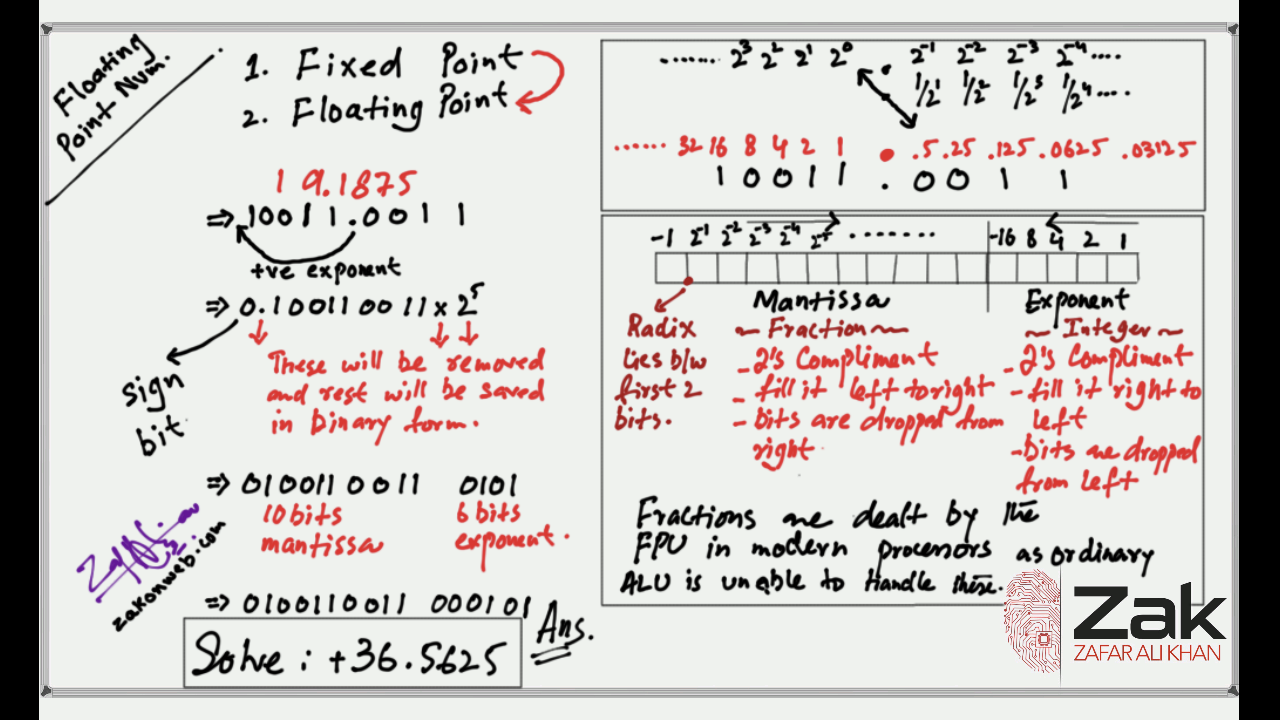 Floating
Point Num.
1. Fixed Point
2. Floating Point
19.1875
⇒ 10011.0011
+ve exponent
⇒ 0.100110011 x 2^5
sign
bit
These will be removed
and rest will be saved
in binary form.
⇒ 0100110011 0101
10 bits 6 bits
mantissa exponent.
zakonweb.com
⇒ 0100110011 000101
Ans.
Solve : +36.5625
....... 2^3 2^2 2^1 2^0 . 2^-1 2^-2 2^-3 2^-4 ....
1/2^1 1/2^2 1/2^3 1/2^4 ....
...... 32 16 8 4 2 1 . .5 .25 .125 .0625 .03125
1 0 0 1 1 . 0 0 1 1
-1 2^-1 2^-2 2^-3 2^-4 2^-5 ........ -16 8 4 2 1
Mantissa Exponent
Radix
lies b/w
first 2
bits.
~ Fraction ~
- 2's Compliment
- fill it left to right
- bits are dropped from
right
~ Integer ~
- 2's Compliment
- fill it right to
left
- bits are dropped
from left
Fractions are dealt by the
FPU in modern processors as ordinary
ALU is unable to Handle these.
Zak
ZAFAR ALI KHAN